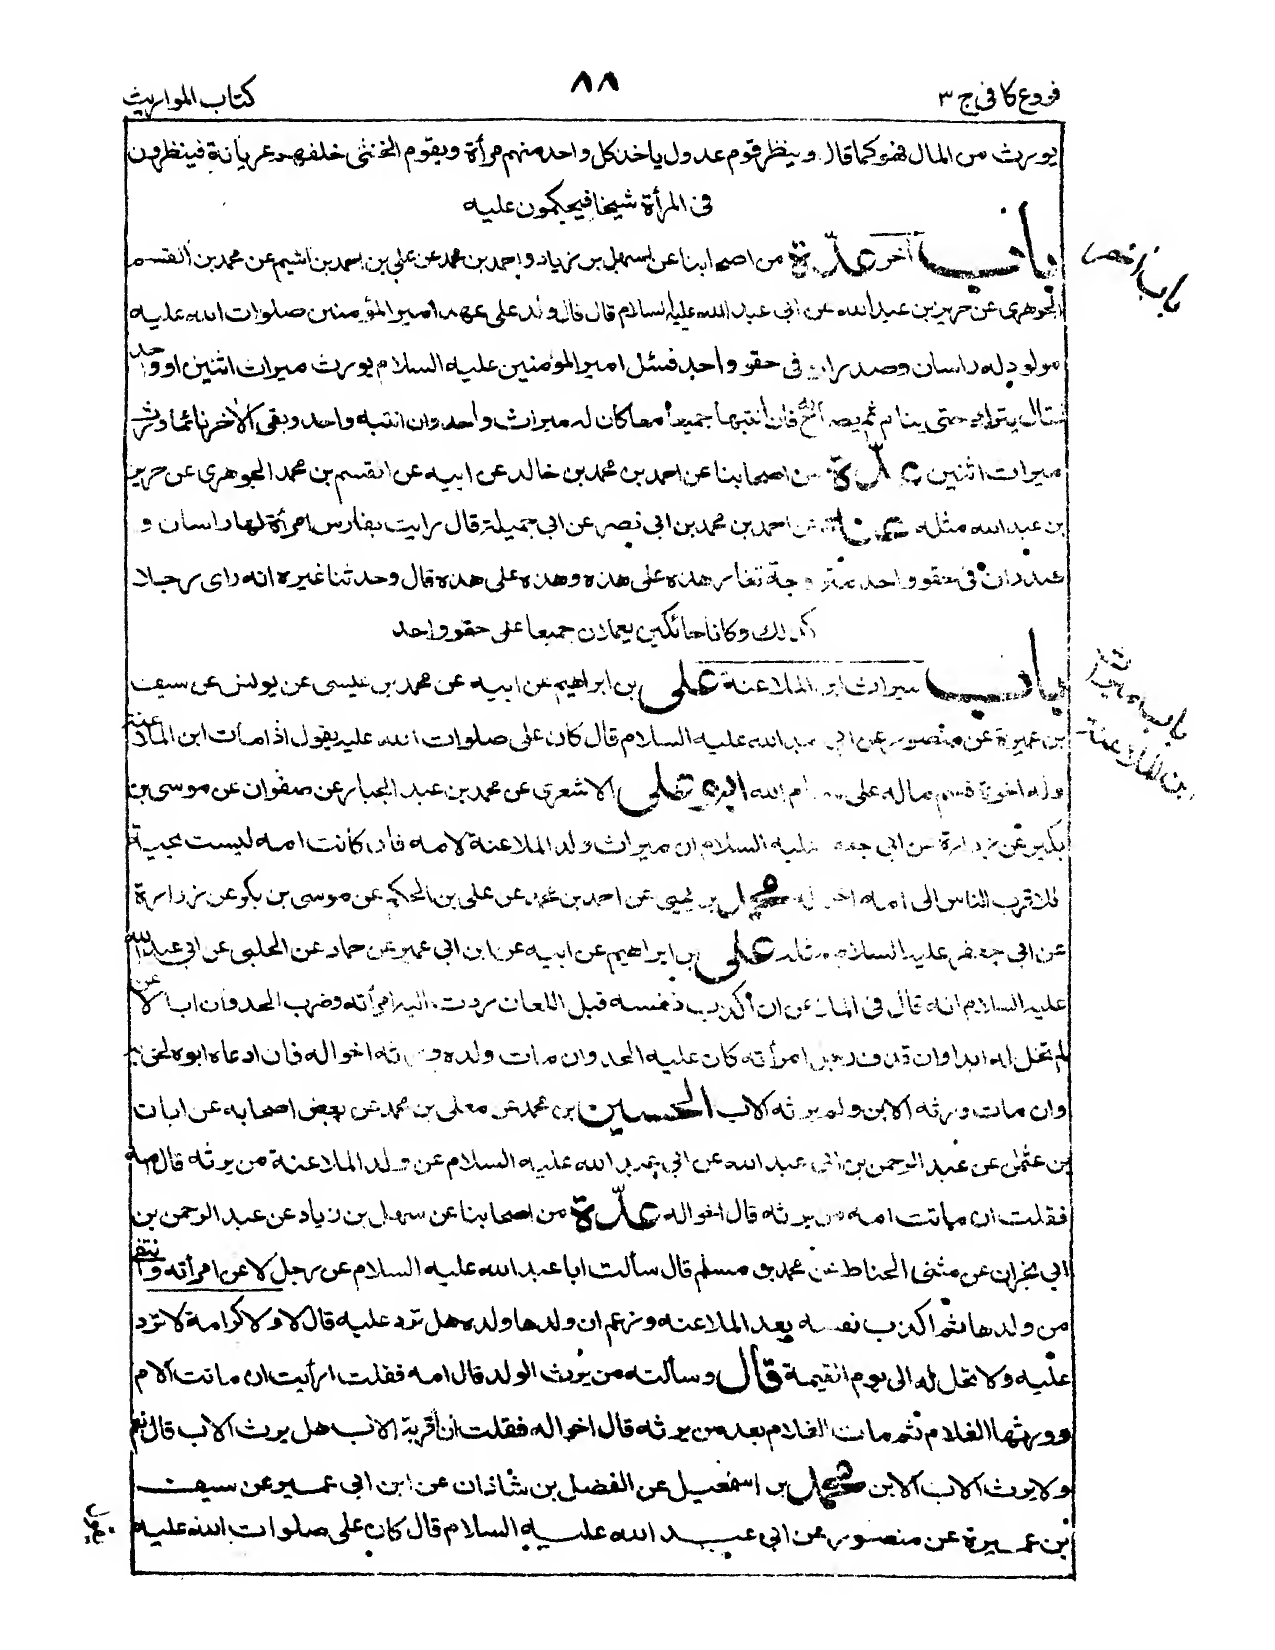 فروع كافى ج ٣
٨٨
كتاب المواريث
يورث من المال فهو كما قال وينظر قوم عدول ياخذ كل واحد منهم مرأة ويقوم الخنثى خلفهم عريانة فينظرون
فى المرأة شيخا فيحكمون عليه
باب آخر عدّة من اصحابنا عن سهل بن زياد واحمد بن محمد عن على بن احمد بن اشيم عن محمد بن القسم
الجوهرى عن حريز بن عبد الله عن ابى عبد الله عليه السلام قال قال ولد على عهد امير المؤمنين صلوات الله عليه
مولود له راسان وصدران فى حقو واحد فسئل امير المؤمنين عليه السلام يورث ميراث اثنين او واحد
فقال يترك حتى ينام ثم يصاح فان انتبها جميعا معا كان له ميراث واحد وان انتبه واحد وبقى الآخر نائما ورث
ميراث اثنين عدّة من اصحابنا عن احمد بن محمد بن خالد عن ابيه عن القسم بن محمد الجوهرى عن حريز
بن عبد الله مثله عن احمد بن محمد بن ابى نصر عن ابى جميلة قال رايت بفارس امرأة لها راسان و
صدران فى حقو واحد متزوجة تغار هذه على هذه وهذه على هذه قال وحدثنا غيره انه راى رجلا
كذلك وكانا حائكين يعملان جميعا على حقو واحد
باب ميراث ابن الملاعنة على بن ابراهيم عن ابيه عن محمد بن عيسى عن يونس عن سيف
بن عميرة عن منصور عن ابى عبد الله عليه السلام قال كان على صلوات الله عليه يقول اذا مات ابن الملاعنة
وله اخوة قسم ماله على سهام الله ابو على الاشعرى عن محمد بن عبد الجبار عن صفوان عن موسى بن
بكير عن زرارة عن ابى جعفر عليه السلام ان ميراث ولد الملاعنة لامه فان كانت امه ليست بحية
فلاقرب الناس الى امه اخواله محمد بن يحيى عن احمد بن محمد عن على بن الحكم عن موسى بن بكر عن زرارة
عن ابى جعفر عليه السلام مثله على بن ابراهيم عن ابيه عن ابن ابى عمير عن حماد عن الحلبى عن ابى عبد الله
عليه السلام انه قال فى الملاعن ان أكذب نفسه قبل اللعان ردت اليه امرأته وضرب الحد وان ابى لاعن
لم تحل له ابدا وان قذف رجل امرأته كان عليه الحد وان مات ولده ورثه اخواله فان ادعاه ابوه لحق به
وان مات ورثه الابن ولم يرثه الاب الحسين بن محمد عن معلى بن محمد عن بعض اصحابه عن ابان
بن عثمن عن عبد الرحمن بن ابى عبد الله عن ابى عبد الله عليه السلام عن ولد الملاعنة من يرثه قال امه
فقلت ان ماتت امه من يرثه قال اخواله عدّة من اصحابنا عن سهل بن زياد عن عبد الرحمن بن
ابى نجران عن مثنى الحناط عن محمد بن مسلم قال سألت ابا عبد الله عليه السلام عن رجل لاعن امرأته وانتفى
من ولدها ثم اكذب نفسه بعد الملاعنه وزعم ان ولدها ولده هل ترد عليه قال لا ولا كرامة لا ترد
عليه ولا تحل له الى يوم القيمة قال وسألته من يرث الولد قال امه فقلت ارأيت ان ماتت الام
وورثها الغلام ثم مات الغلام بعد من يرثه قال اخواله فقلت ان اقر به الاب هل يرث الاب قال نعم
ولا يرث الاب الابن محمد بن اسمعيل عن الفضل بن شاذان عن ابن ابى عمير عن سيف
بن عميرة عن منصور عن ابى عبد الله عليه السلام قال كان على صلوات الله عليه
باب آخر
باب ميراث
ابن الملاعنة